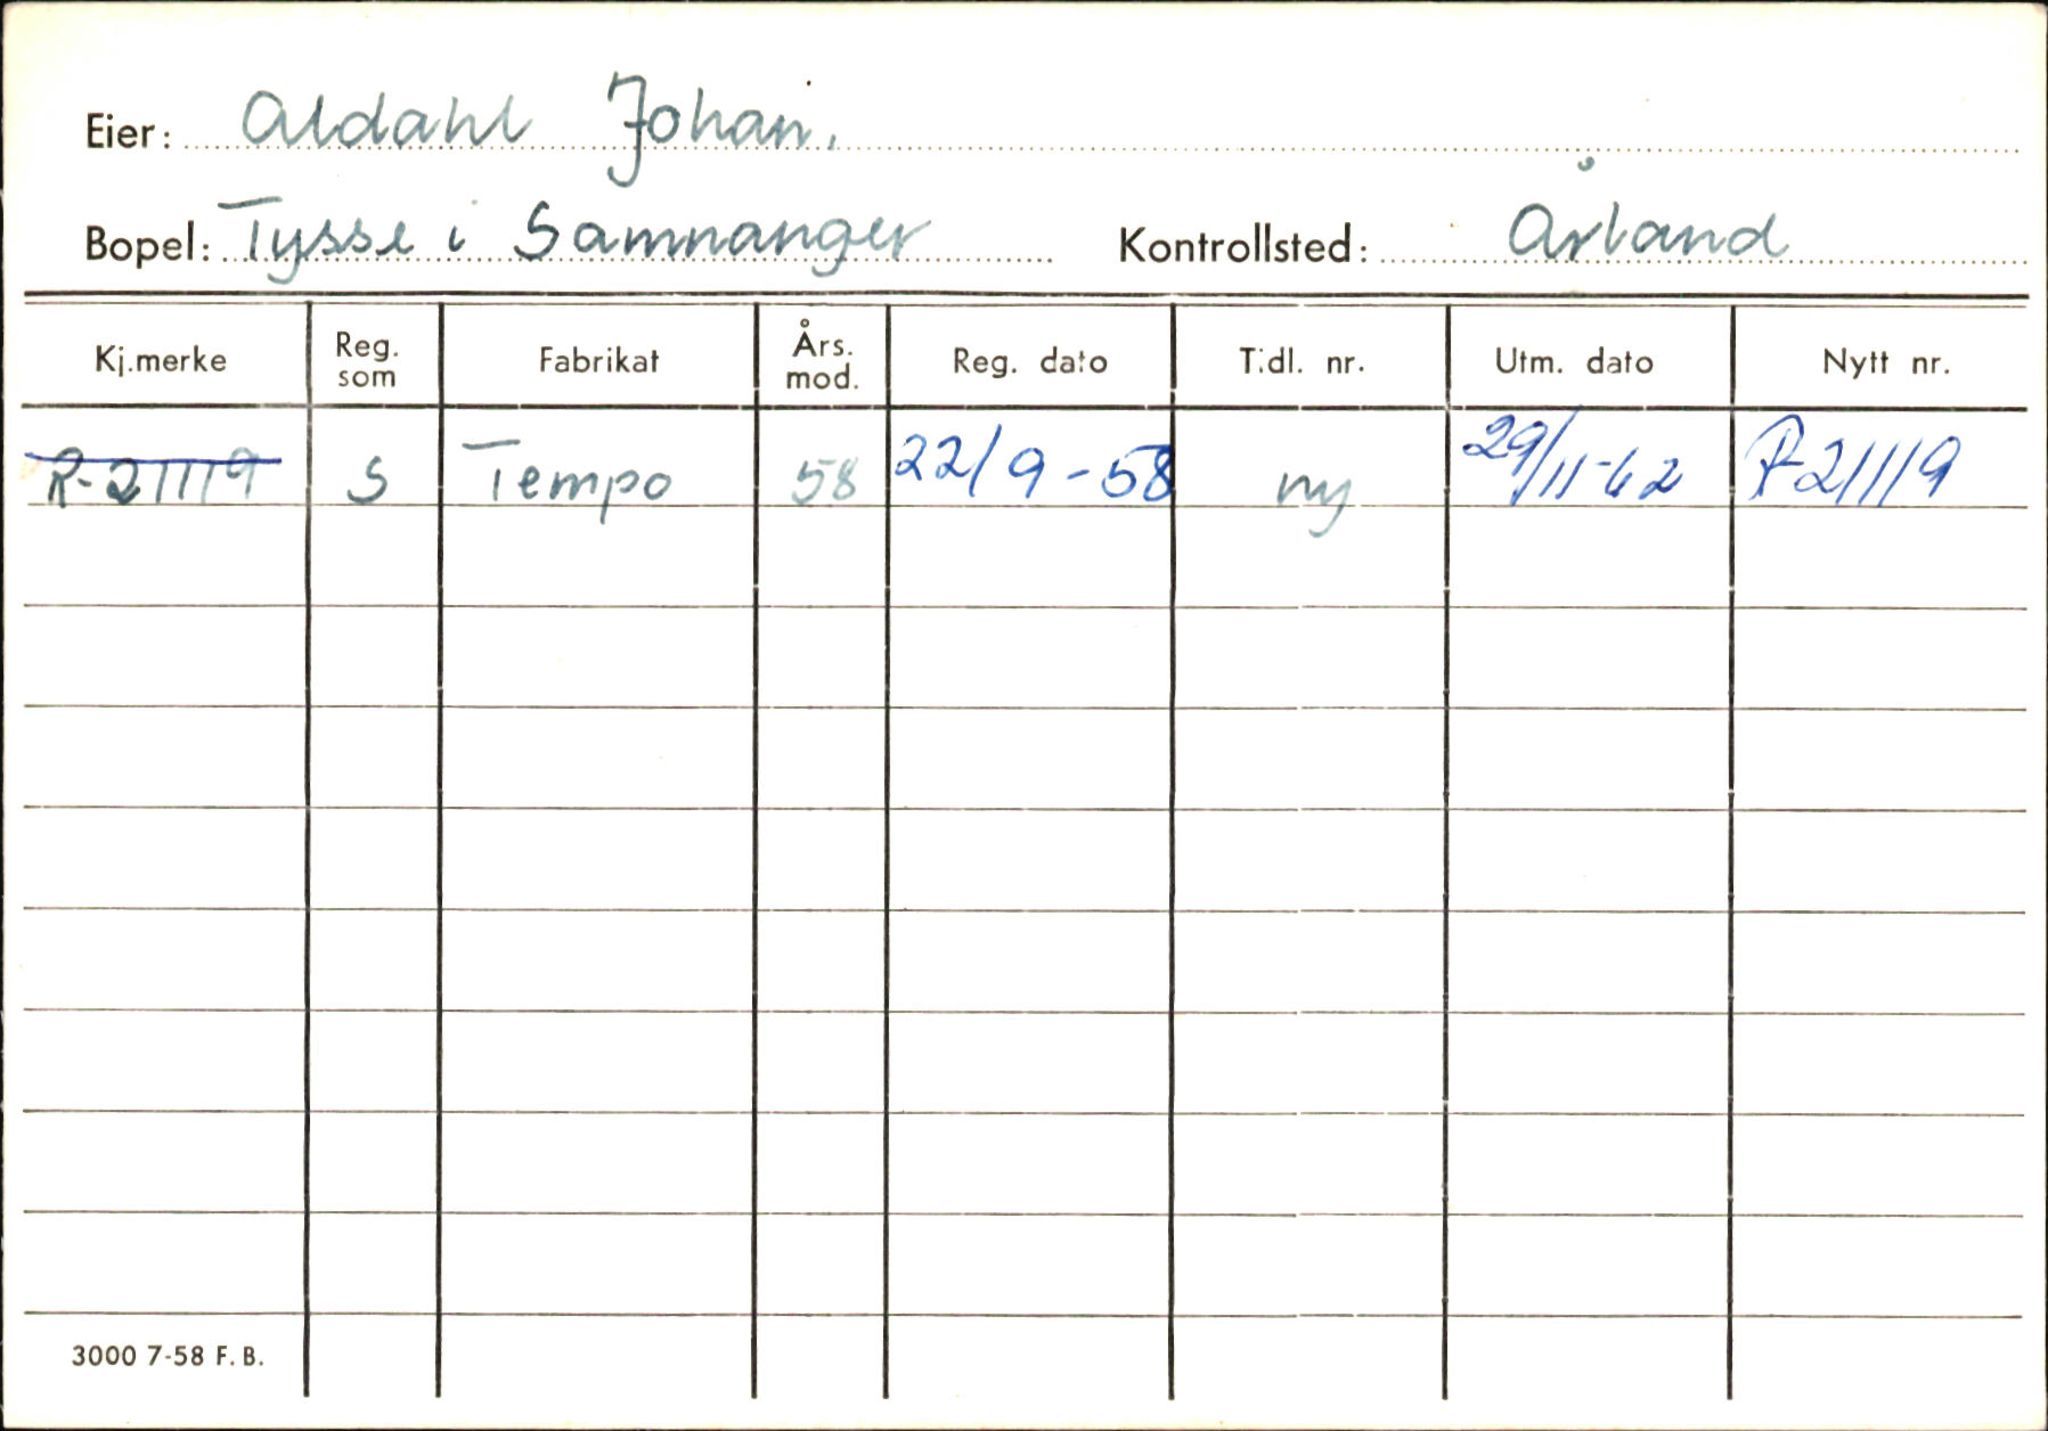 Eier: Aldahl Johan.
Bopel: Tysse i Samnanger Kontrollsted: Årland
Kj.merke Reg. som Fabrikat Års. mod. Reg. dato Tidl. nr. Utm. dato Nytt nr.
R-21119 S Tempo 58 22/9-58 ny 29/11-62 R-21119
3000 7-58 F. B.